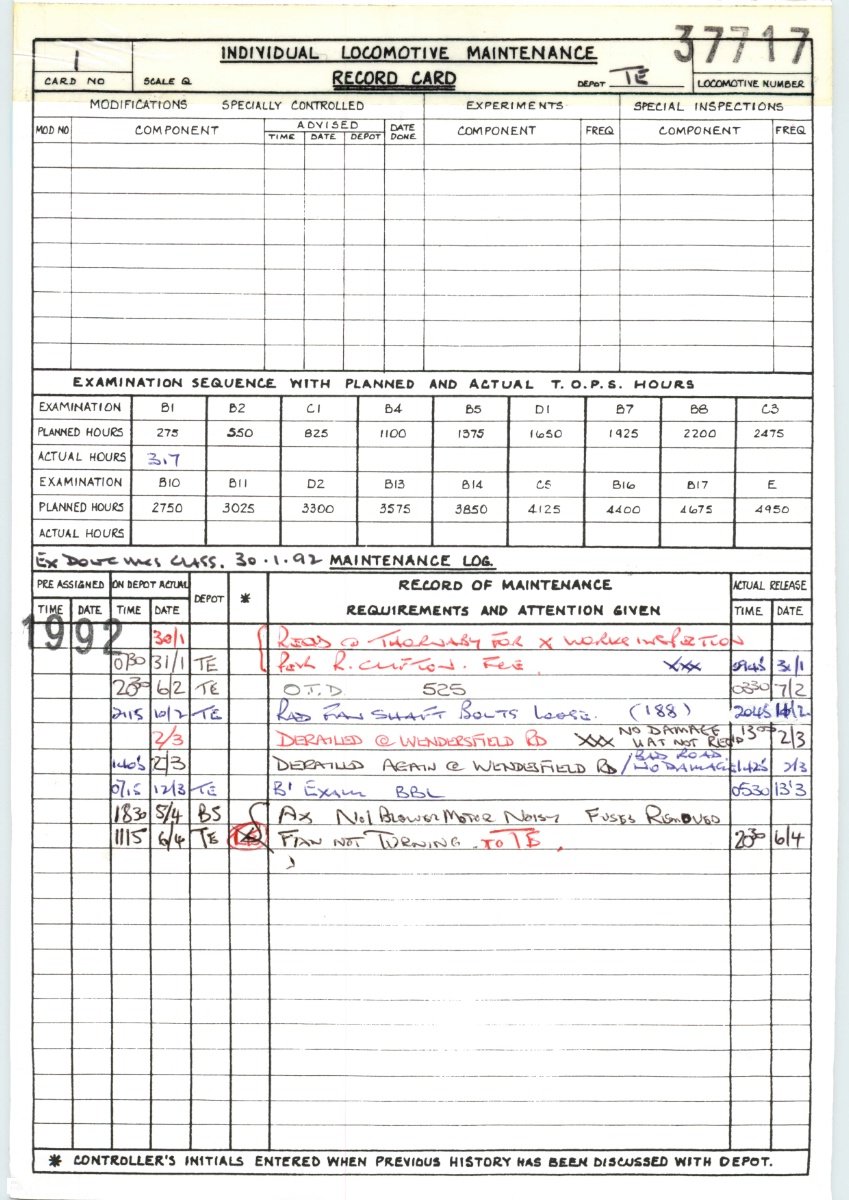 1 INDIVIDUAL LOCOMOTIVE MAINTENANCE 37717
CARD NO SCALE Q RECORD CARD DEPOT TE LOCOMOTIVE NUMBER
MODIFICATIONS SPECIALLY CONTROLLED EXPERIMENTS SPECIAL INSPECTIONS
MOD NO COMPONENT ADVISED DATE DONE COMPONENT FREQ COMPONENT FREQ
TIME DATE DEPOT
EXAMINATION SEQUENCE WITH PLANNED AND ACTUAL T.O.P.S. HOURS
EXAMINATION B1 B2 C1 B4 B5 D1 B7 B8 C3
PLANNED HOURS 275 550 825 1100 1375 1650 1925 2200 2475
ACTUAL HOURS 317
EXAMINATION B10 B11 D2 B13 B14 C5 B16 B17 E
PLANNED HOURS 2750 3025 3300 3575 3850 4125 4400 4675 4950
ACTUAL HOURS
EX CLASS. 30.1.92 MAINTENANCE LOG.
PRE ASSIGNED ON DEPOT ACTUAL DEPOT * RECORD OF MAINTENANCE ACTUAL RELEASE
TIME DATE TIME DATE REQUIREMENTS AND ATTENTION GIVEN TIME DATE
1992 30/1 @ THORNABY FOR X WORKS INSPECTION
0730 31/1 TE R. CLIFTON. XXX 31/1
2030 6/2 TE O.T.D 525 0330 7/2
2115 10/2 TE RAD FAN SHAFT BOLTS LOOSE. (188) 2045
2/3 DERAILED @ WENDERSFIELD RD XXX NO DAMAGE 1300 2/3
UAT NOT REQ'D
2/3 DERAILED AGAIN @ WENDERSFIELD RD / BAD ROAD 2/3
NO DAMAGE
0715 12/3 TE B' EXAM BBL 0530 13'3
1830 5/4 BS AX NO1 BLOWER MOTOR NOISY FUSES REMOVED
1115 6/4 TE FAN NOT TURNING. TO TE. 2030 6/4
* CONTROLLER'S INITIALS ENTERED WHEN PREVIOUS HISTORY HAS BEEN DISCUSSED WITH DEPOT.